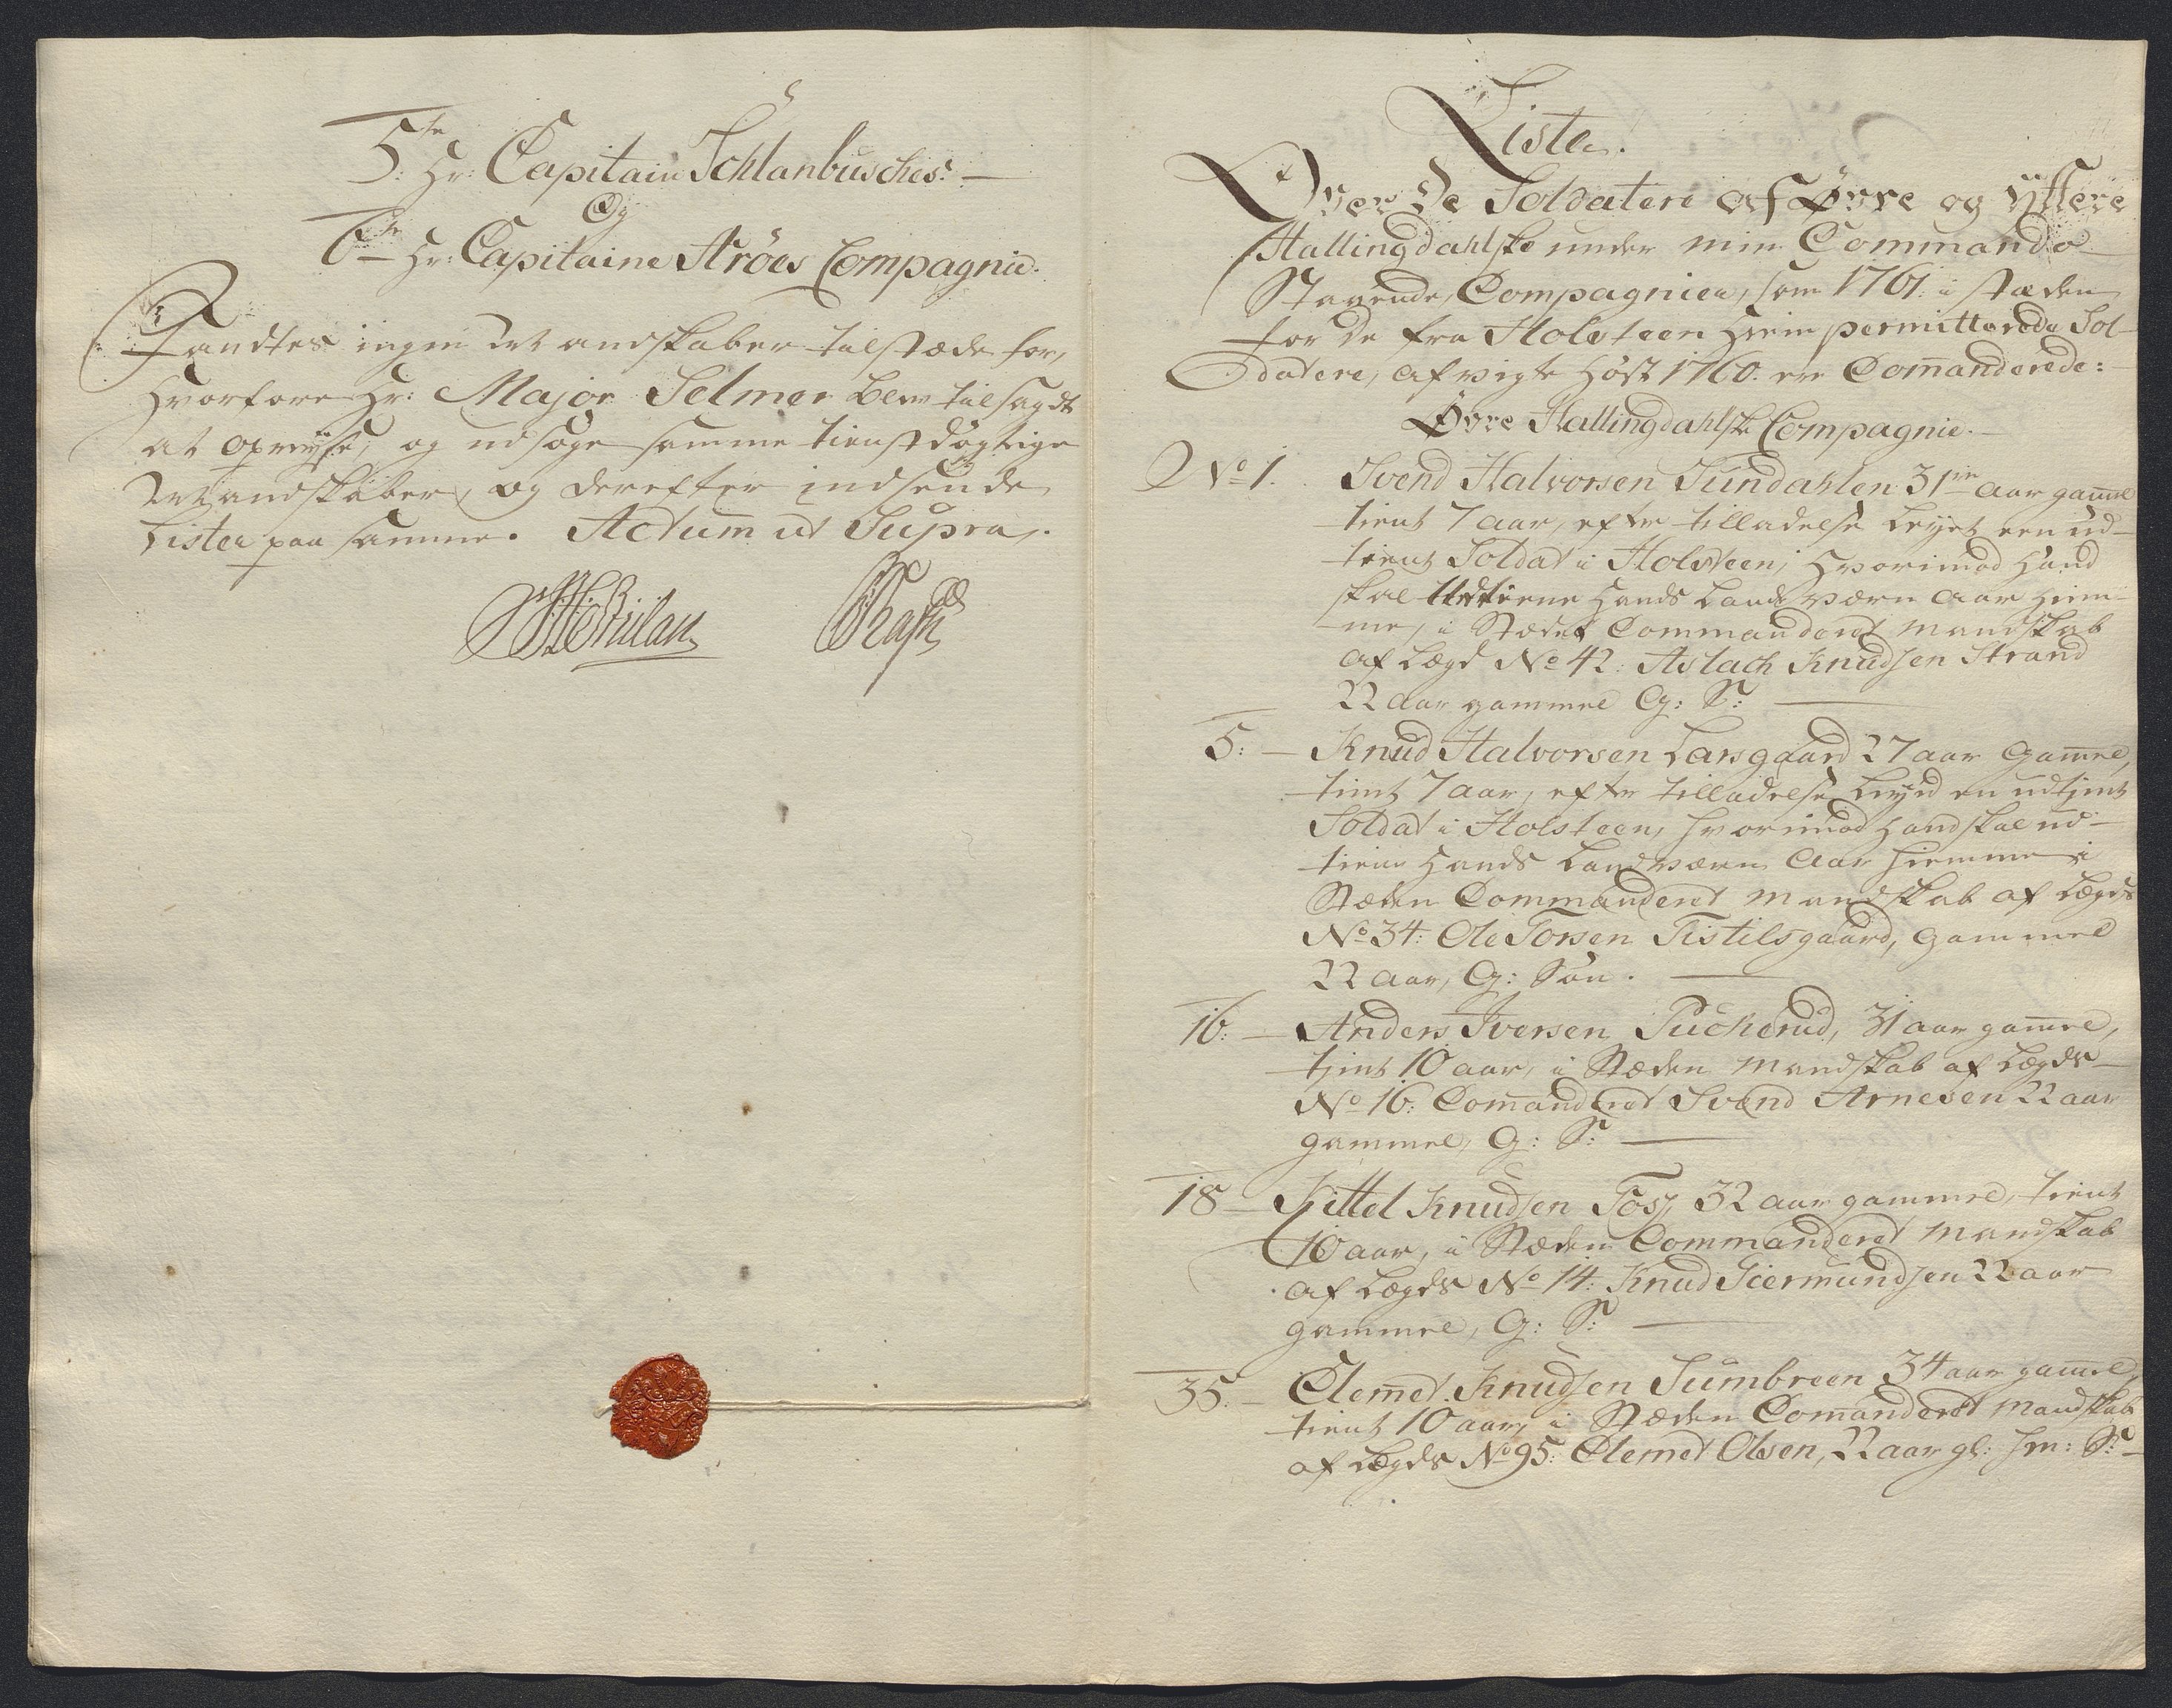 5te Hr: Capitain Schlanbusches: —
Og
6te Hr: Capitaine Ströes Compagnie.
Fandtes ingen Mandskaber tilstæde for,
hvorfore Hr: Major Selmer blev tilsagdt
at opreyse, og udsøge samme tienstdögtige
Mandskaber, og derefter indsende
Lister paa samme. Actum ut Supra.
Rasch
Liste.
Over De Soldatere af Øvre og Yttere
Hallingdahlske under min Commando
Staaende Compagnier, som 1761: i stæden
for De fra Holsteen hiem permitterede Sol-
datere, afvigte Höst 1760. er Comanderede:
Øvre Hallingdahlske Compagnie. —
No 1. Svend Halvorsen Sundahlen 31 aar gamel
tient 7 aar, efter tilladelse leyet een ud-
tient Soldat i Holsteen, hvorimod hand
skal udtiene hands Land værn aar hiem-
me, i Stædet Commanderet Mandskab
af Lægd No 42: Aslach Knudsen Strand
22 aar gammel G: S: —
5: — Knud Halvorsen Larsgaard 27 aar gamel,
tient 7 aar, efter tilladelse leyed en udtient
Soldat i Holsteen, hvorimod hand skal ud-
tiene hands Landværn aar hiemme i
Stæden Commanderet Mandskab af Lægds
No 34: Ole Torsen Tistilsgaard, gammel
22 aar, G: Sön. —
16: — Anders Iversen Puckerud, 31 aar gamel,
tient 10 aar, i Stæden Mandskab af Lægds
No 16: Comanderet Svend Arnesen 22 aar
gammel, G: S: —
18 — Kittel Knudsen Foss, 32 aar gammel, tient
10 aar, i Stæden Commanderet Mandskab
af Lægds No 14: Knud Giermundsen 22 aar
gammel, G: S: —
35. — Clemet Knudsen Sumbreen 34 aar gamel,
tient 10 aar, i Stæden Comanderet Mandskab
af Lægds No 95: Clemet Olsen, 22 aar gl: Hm: S: —